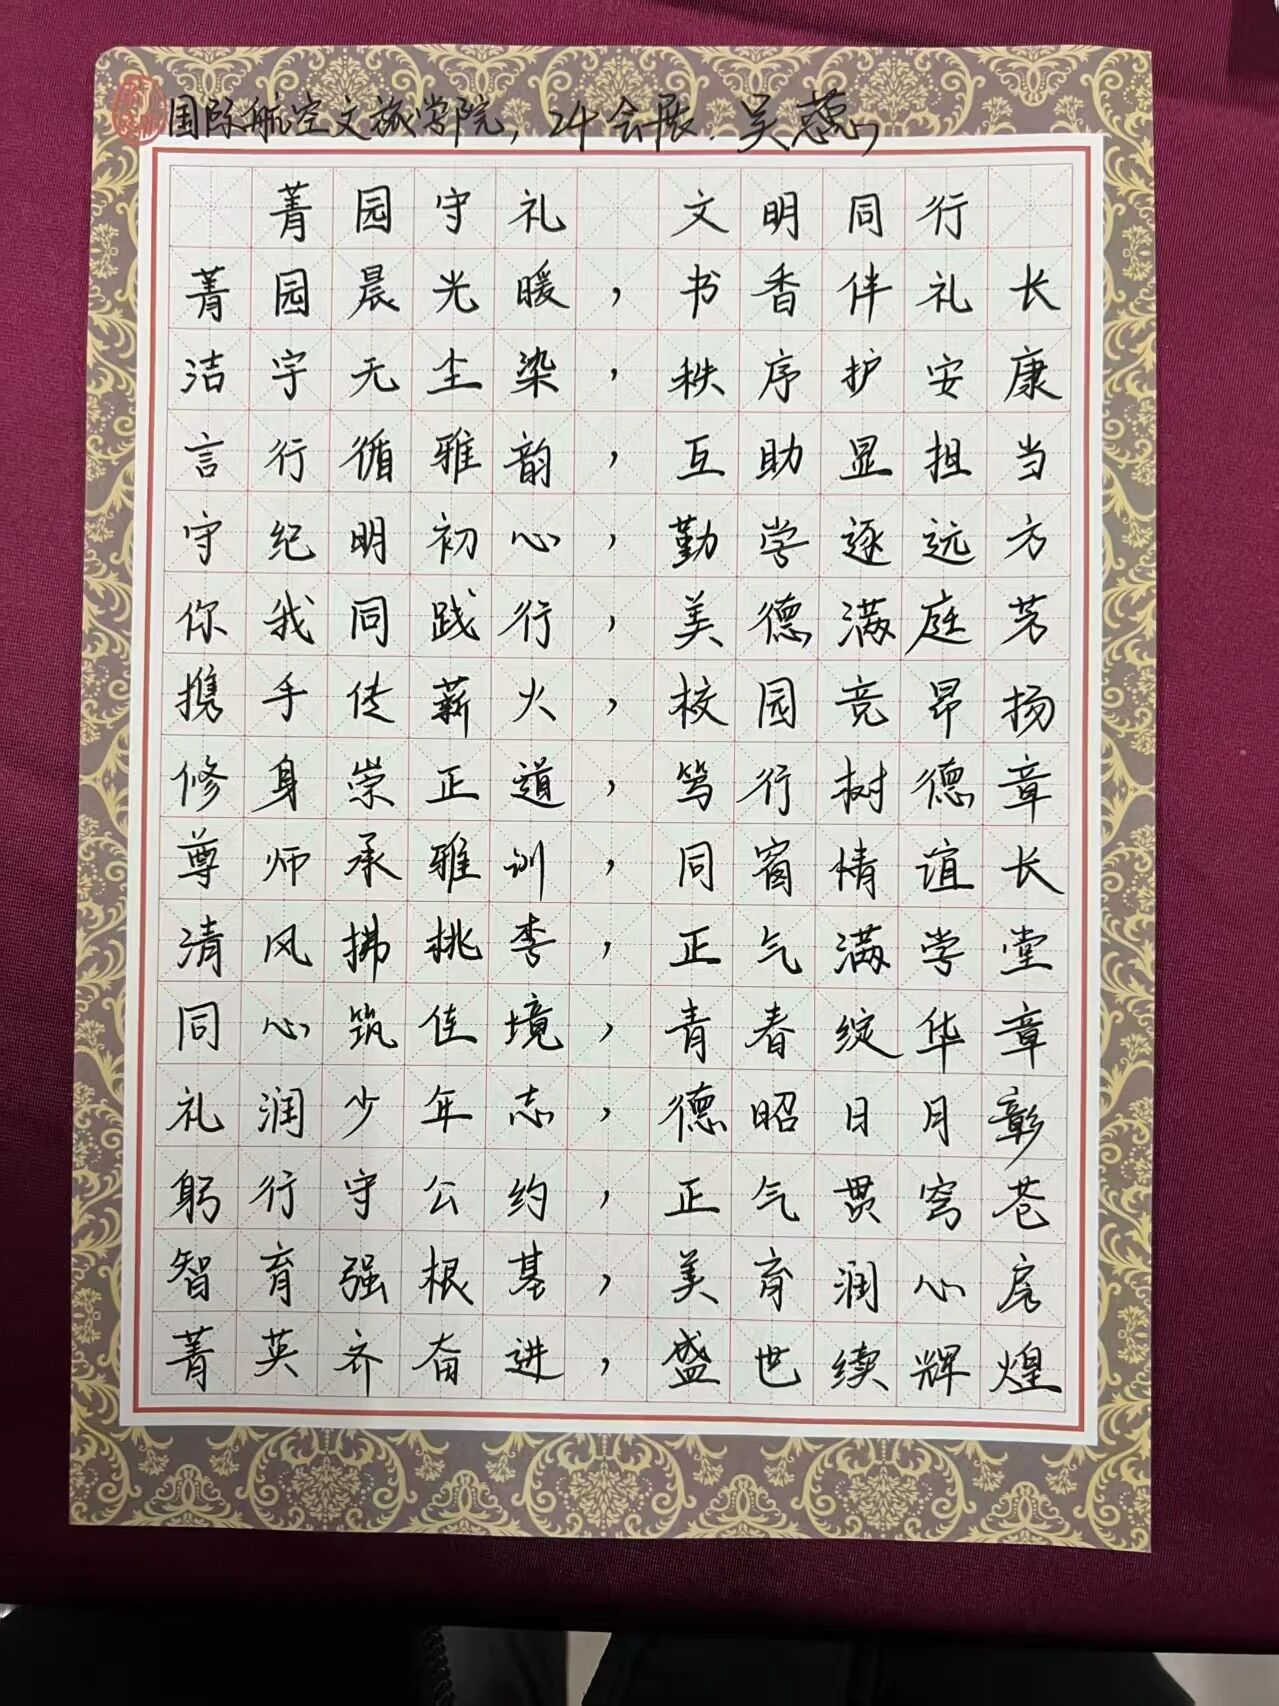 国际航空文旅学院，24会展．吴蕊
菁园守礼 文明同行
菁园晨光暖，书香伴礼长
洁宇无尘染，秩序护安康
言行循雅韵，互助显担当
守纪明初心，勤学逐远方
你我同践行，美德满庭芳
携手传薪火，校园竞昂扬
修身崇正道，笃行树德章
尊师承雅训，同窗情谊长
清风拂桃李，正气满学堂
同心筑佳境，青春绽华章
礼润少年志，德昭日月彰
躬行守公约，正气贯穹苍
智育强根基，美育润心房
菁英齐奋进，盛世续辉煌